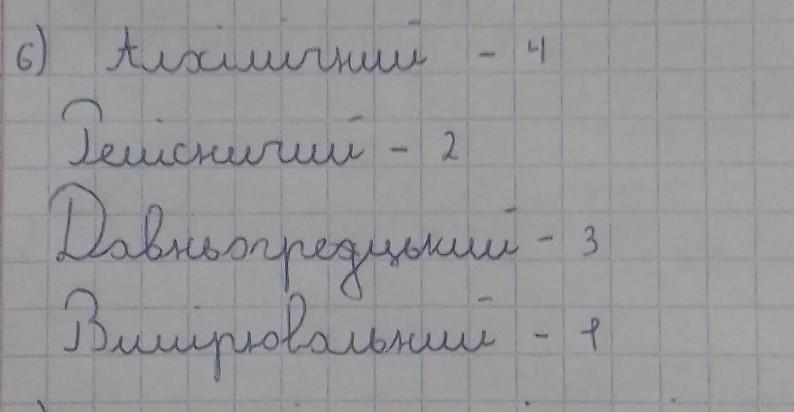 6) Алхімічний - 4
Ремісничий - 2
Давньогредцький - 3
Вимірювальний - 1